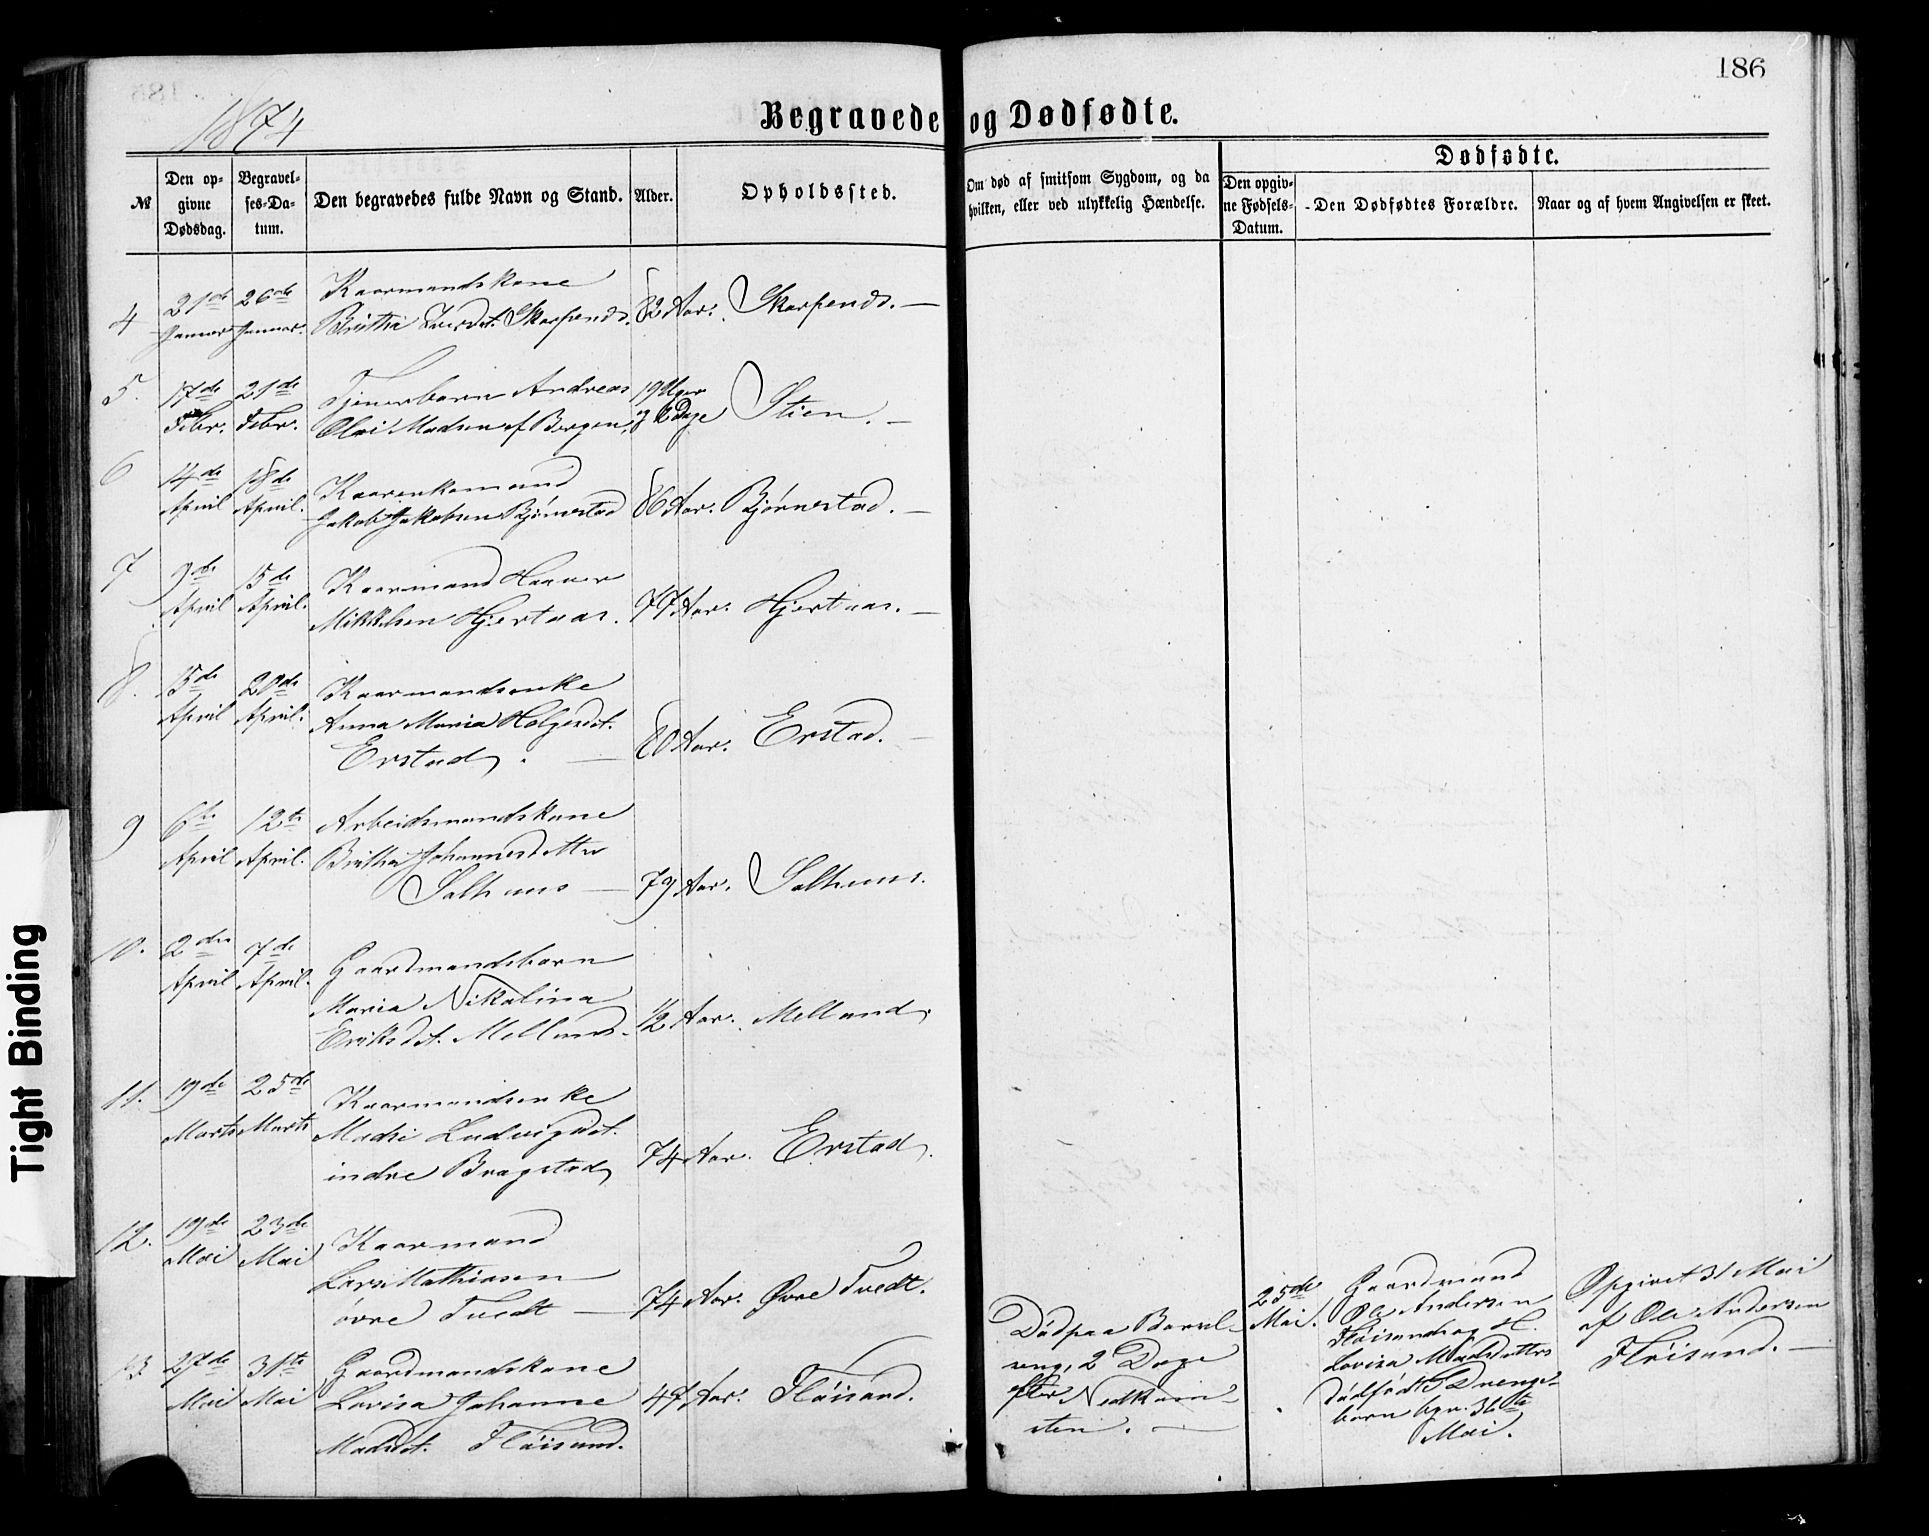 186
1874
Begravede og Dødfødte.
Dødfødte.
№
Den opgivne Dødsdag.
Begravelses-Datum.
Den begravedes fulde Navn og Stand.
Alder.
Opholdssted.
Om død af smitsom Sygdom, og da
hvilken, eller ved ulykkelig Hændelse.
Den opgivne Fødsels-Datum.
Den Dødfødtes Forældre.
Naar og af hvem Angivelsen er skeet.
4 21de Januar 26de Januar.
Kaarmandskone
Britha Iversdt. Skarpends. 82 Aar. Skarpends. —
5. 17de Febr. 21de Febr.
Tjenerbarn Andreas
Olai Madsen af Bergen. 19 Uger 2 Dage Stien. —
6 14de April 18de April.
Kaarenkemand
Jakob Jakobsen Bjørnestad 86 Aar. Bjørnestad. —
7 9de April 15de April.
Kaarmand Haaver
Mikkelsen Hjertaas. 77 Aar. Hjertaas. —
8. 15de April 20de April.
Kaarmandsenke
Anna Maria Helgesdt.
Erstad. — 80 Aar. Erstad. —
9 6te April 12te April.
Arbeidsmandskone
Britha Johannesdatter
Salhuus — 79 Aar. Salhuus.
10. 2den April 7de April.
Gaardmandsbarn
Maria Nikolina
Eriksdt. Melland. ½ Aar. Melland.
11. 19de Marts 25de Marts
Kaarmandsenke
Madsi Ludvigsdt.
indre Bragstad 74 Aar. Erstad.
12. 19de Mai 23de Mai
Kaarmand
Lars Mathiasen
øvre Tvedt — 74 Aar. Øvre Tvedt.
13 27de Mai 31te Mai
Gaardmandskone
Lovisa Johanne
Madsdt. Fløisand. 47 Aar. Fløisand.
Død paa Barsel-
seng, 2 Dage
efter Nedkom-
sten. —
25de Mai.
Gaardmand
Ole Andersen
Fløisand og H.
Lovisa Madsdatters
dødfødte Drenge-
barn bgr. 31te
Mai.
Opgivet 31 Mai
af Ole Andersen
Fløisand. —
Tight Binding